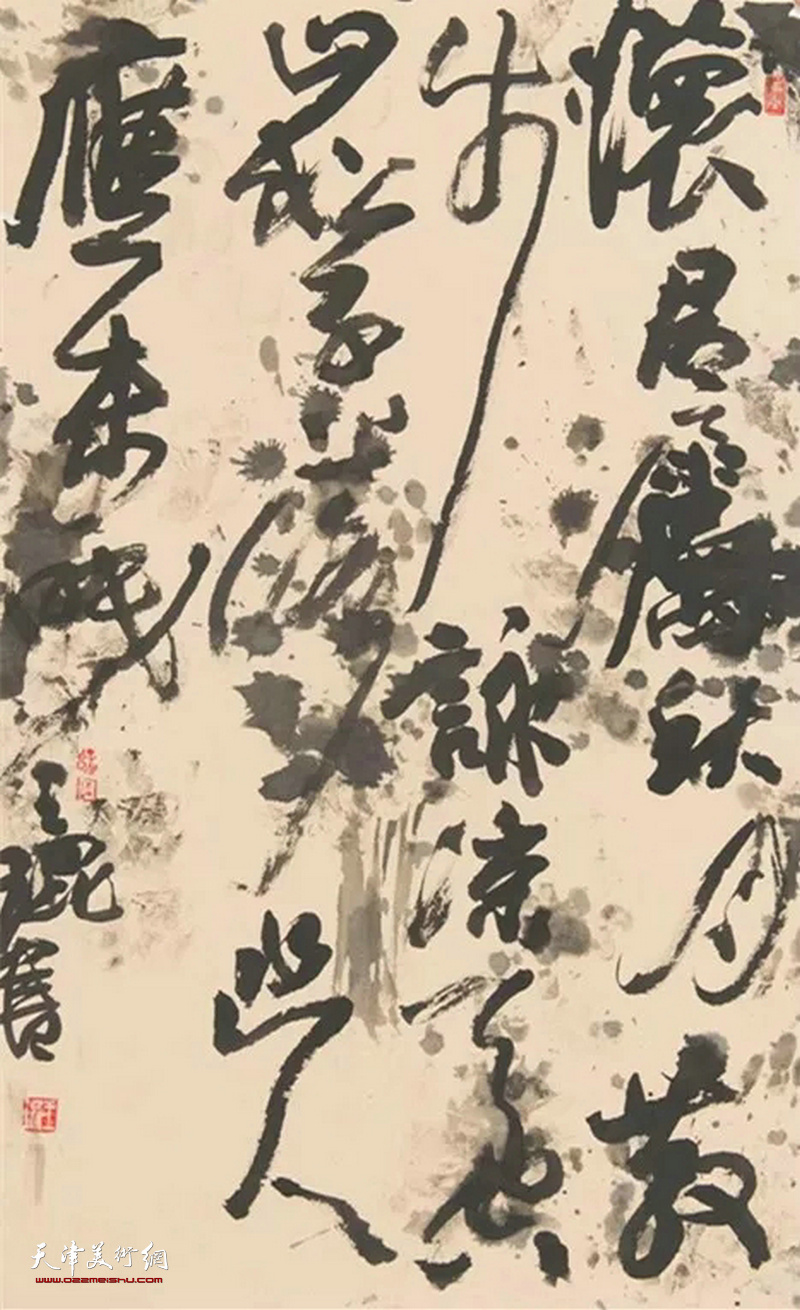 懷君屬秋月散
步詠涼天空
山松子落幽人
應未眠
王琨書
天津美術網
www.022meishu.com